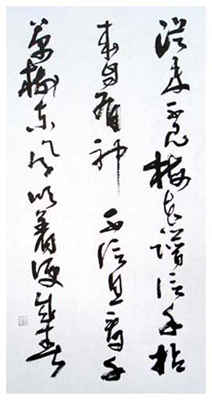 從来不見梅花譜信手拈
来自有神不信且看千
萬樹東風吹着便成春